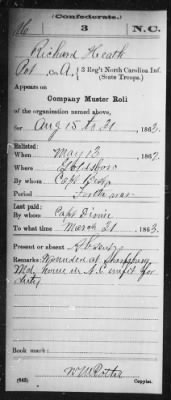 (Confederate.)
H 3 N.C.
Richard Heath
Pvt, Co. A, 3 Reg't North Carolina Inf.
(State Troops.)
Appears on
Company Muster Roll
of the organization named above,
for Aug 15 to 31, 1863.
Enlisted:
When May 13, 1862.
Where Goldsboro
By whom Capt
Period For the war
Last paid:
By whom Capt
To what time March 31, 1863.
Present or absent Absent
Remarks: Wounded at Sharpsburg
Md. now in N.C unfit for
duty
Copyist.
(642)